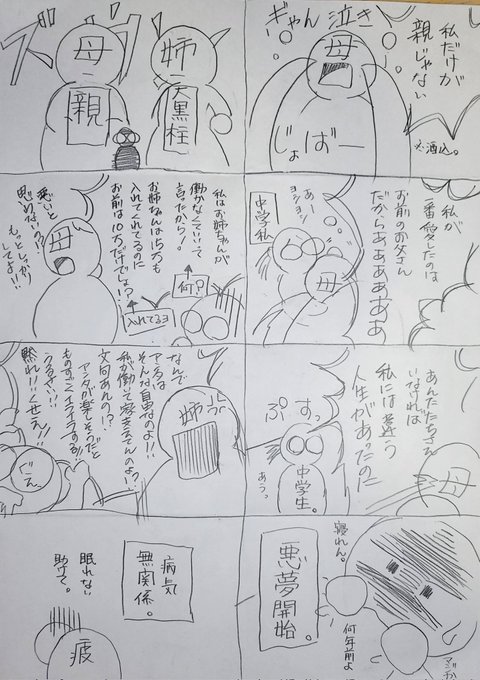 私だけが
親じゃない
ギャン泣き
母
じょばー
※酒込。
ズウ
姉
大黒柱
母
親
私が
一番愛したのは
お前のお父さん
だからあああああああ
あー
ヨショシ
中学私
母
私はお姉ちゃんが
働かなくていいって
言ったから!
お姉ちゃんは15万も
入れてくれてるのに
お前は10万だけでしょ!?
悪いと
思わない!?
もっとしっかり
してよ!!
母
何?
入れてるヨ
あんたたちさえ
いなければ
私には違う
人生があったのに
ぷすっ
中学生。
あうっ
母
なんで
アンタは
そんな自由なのよ!!
私が働いて家支えてんのよ!?
文句あんの!?
アンタが楽しそうだと
ものすごくイライラする!!
うるさい!!
黙れ!!くせえ!!
姉
ぐえ
寝れん。
何年前よ
マジか
悪夢開始。
病気
無関係。
眠れない
助けて。
疲